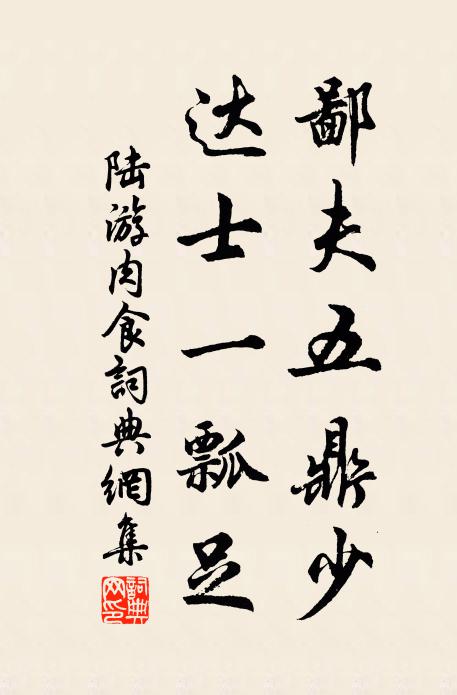 鄙夫五鼎少
达士一瓢足
陆游肉食詞典網集
詞典网印